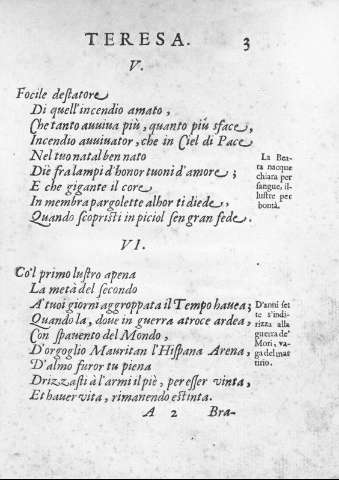 TERESA. 3
V.
Focile destatore
Di quell'incendio amato,
Che tanto avviva più, quanto più sface,
Incendio avvivator, che in Ciel di Pace
Nel tuo natal ben nato
Diè fra lampi d'honor tuoni d'amore;
E che gigante il core
In membra pargolette alhor ti diede,
Quando scopristi in picciol sen gran fede.
La Bea-
ta nacque
chiara per
sangue, il-
lustre per
bontà.
VI.
Co'l primo lustro apena
La metà del secondo
A tuoi giorni aggroppata il Tempo havea;
Quando la, dove in guerra atroce ardea,
Con spavento del Mondo,
D'orgoglio Mauritan l'Hispana Arena,
D'almo furor tu piena
Drizzasti à l'armi il piè, per esser vinta,
Et haver vita, rimanendo estinta.
D'anni set
te s'indi-
rizza alla
guerra de'
Mori, va-
ga del mar
tirio.
A 2 Bra-